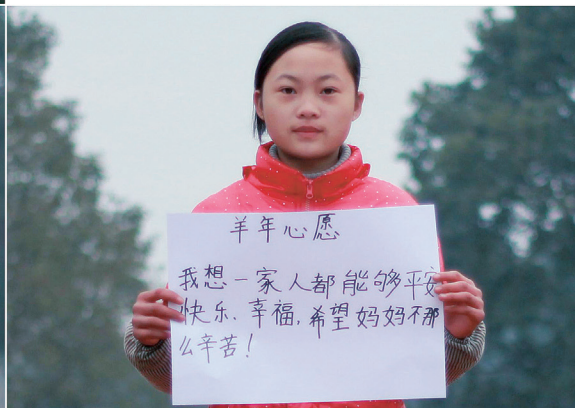 羊年心愿
我想一家人都能够平安
快乐、幸福,希望妈妈不那
么辛苦!